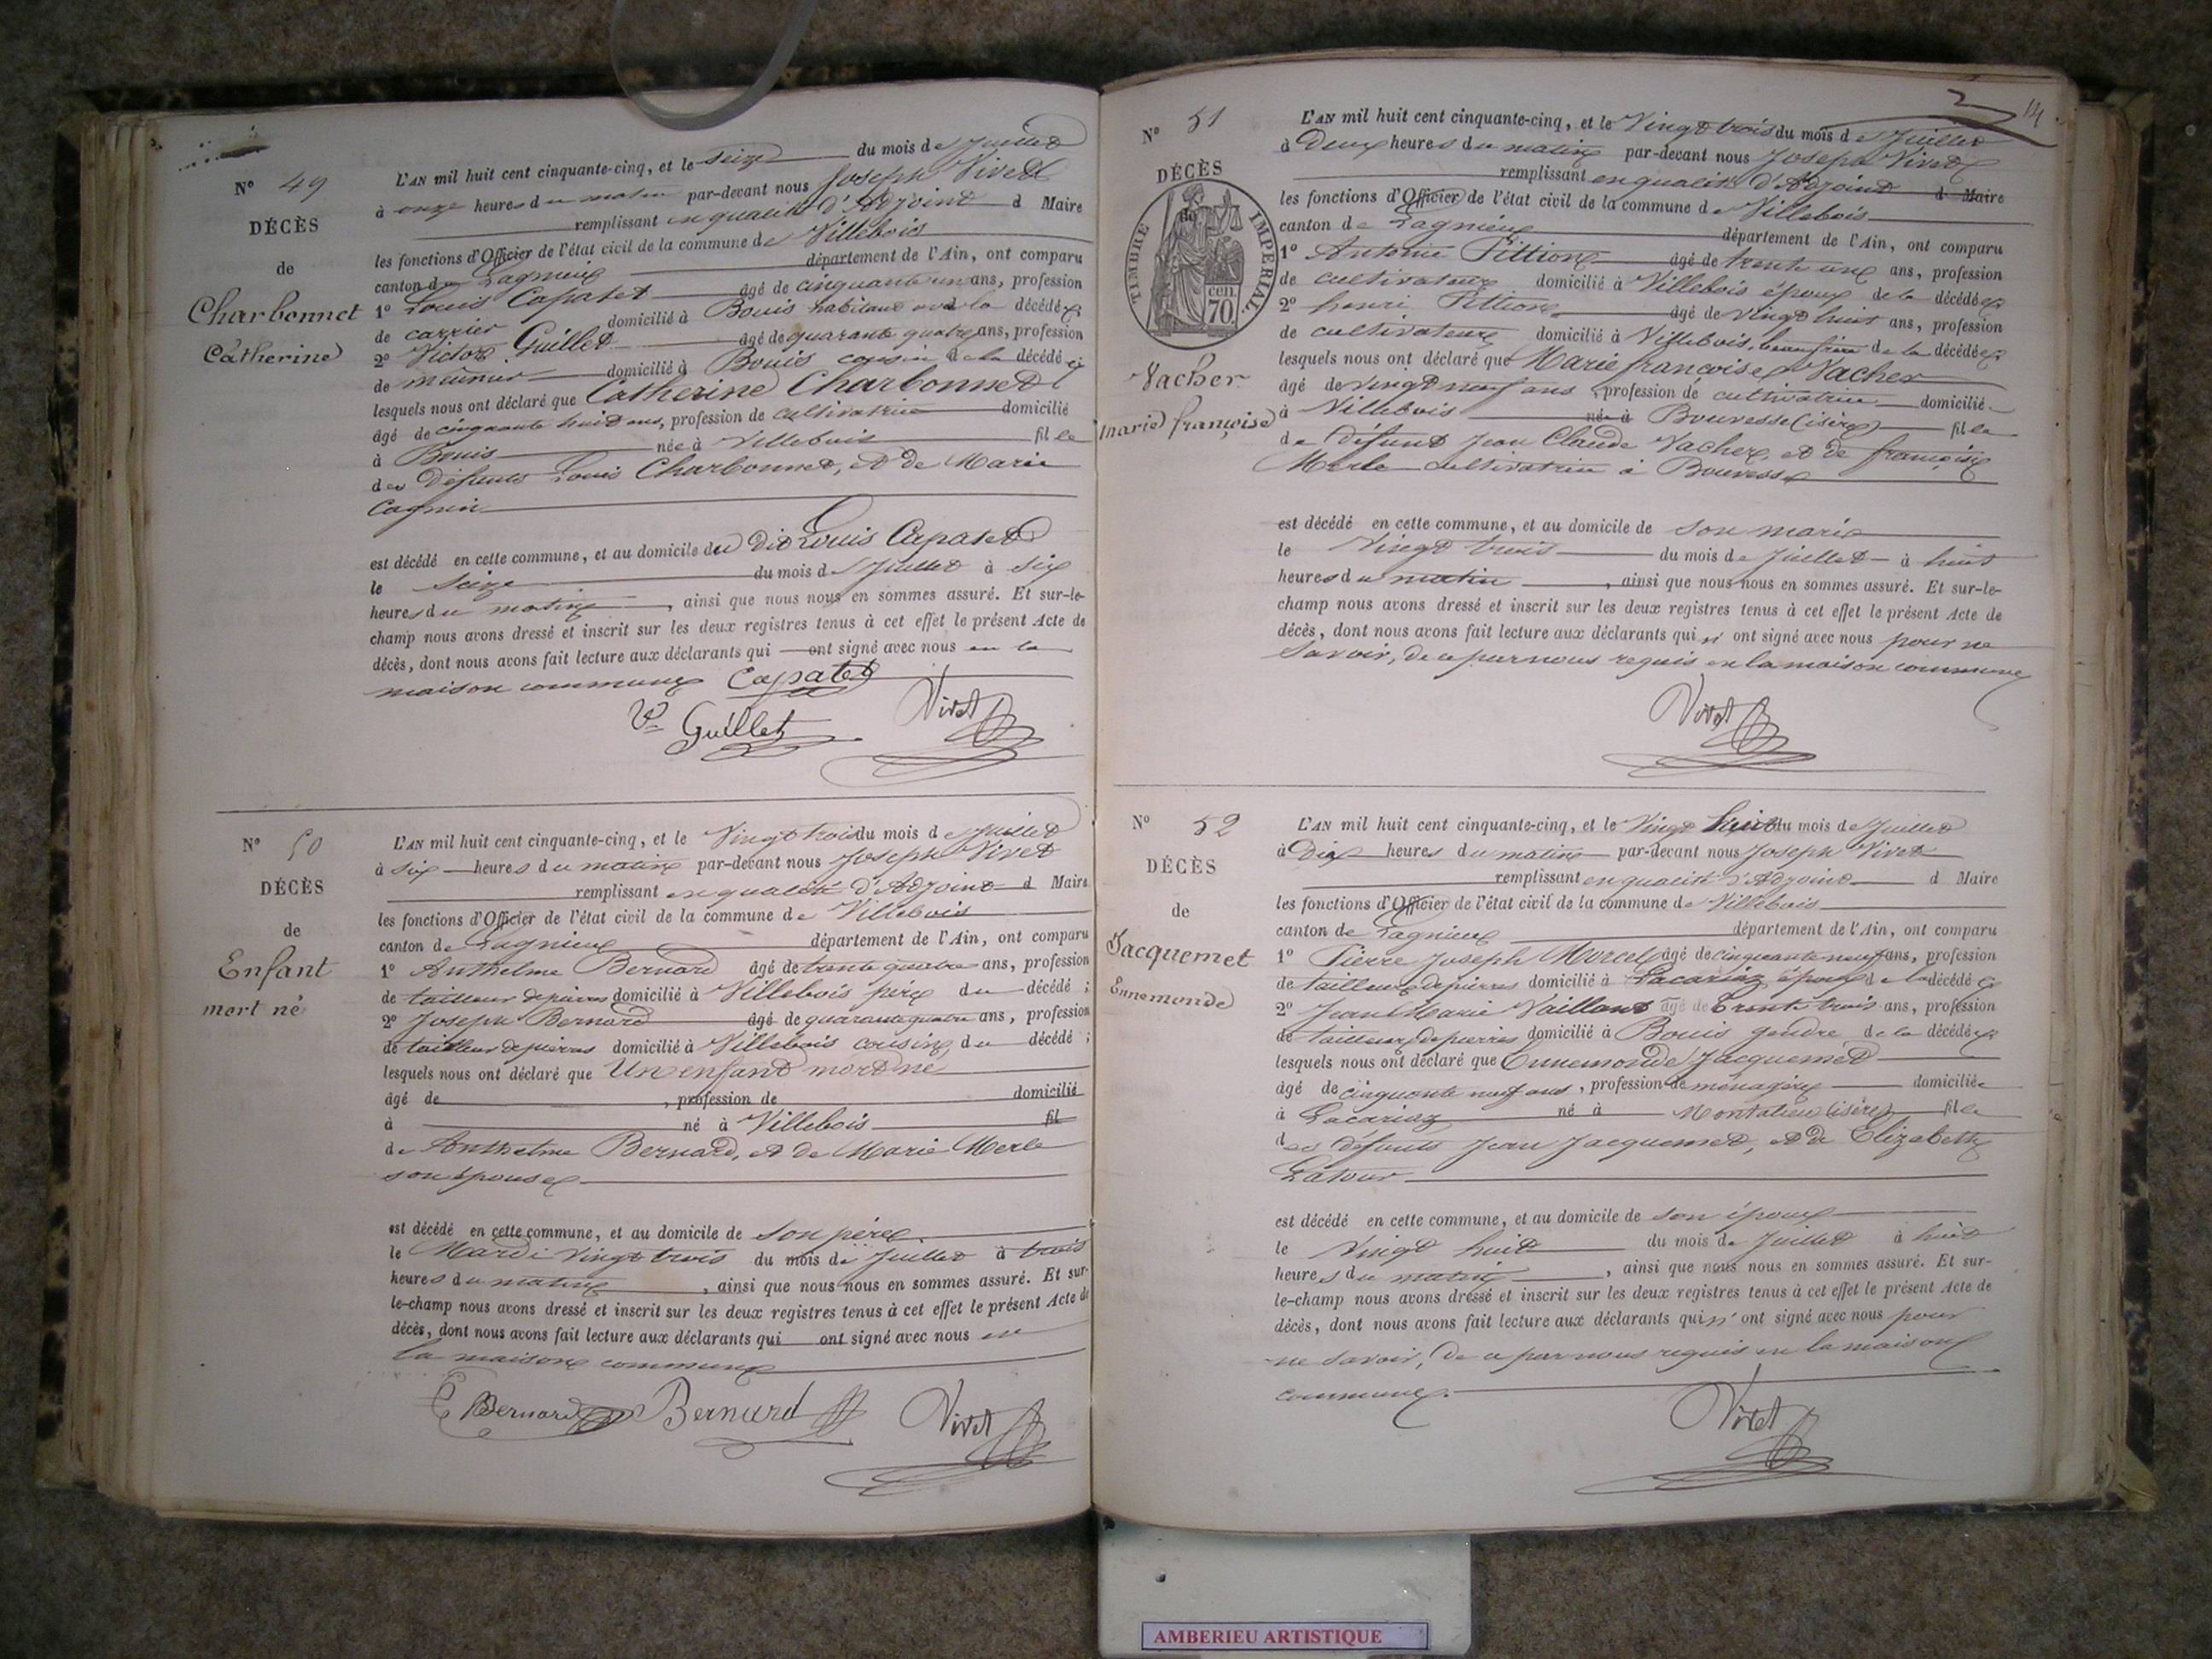 N° 49
DÉCÈS
de
Charbonnet
Catherine
L'AN mil huit cent cinquante-cinq, et le seize du mois de Juillet
à onze heures du matin par-devant nous Joseph Vivet
remplissant en qualité d'Adjoint d Maire
les fonctions d'Officier de l'état civil de la commune de Villebois
canton de Lagnieu département de l'Ain, ont comparu
1° Louis Capatet âgé de cinquante un ans, profession
de carrier domicilié à Bouis habitant avec la décédée;
2° Victor Guillet âgé de quarante quatre ans, profession
de meunier domicilié à Bouis cousin de la décédée;
lesquels nous ont déclaré que Catherine Charbonnet
âgé de cinquante huit ans, profession de cultivatrice domicilié
à Bouis née à Villebois fille
des défunts Louis Charbonnet, et de Marie
Cagnin
est décédé en cette commune, et au domicile du dit Louis Capatet
le seize du mois de Juillet à six
heures du matin, ainsi que nous nous en sommes assuré. Et sur-le-
champ nous avons dressé et inscrit sur les deux registres tenus à cet effet le présent Acte de
décès, dont nous avons fait lecture aux déclarants qui ont signé avec nous en la
maison commune Capatet
Vr Guillet Vivet
N° 50
DÉCÈS
de
Enfant
mort né
L'AN mil huit cent cinquante-cinq, et le Vingt trois du mois de Juillet
à six heures du matin par-devant nous Joseph Vivet
remplissant en qualité d'Adjoint d Maire
les fonctions d'Officier de l'état civil de la commune de Villebois
canton de Lagnieu département de l'Ain, ont comparu
1° Anthelme Bernard âgé de trente quatre ans, profession
de tailleur de pierres domicilié à Villebois père du décédé;
2° Joseph Bernard âgé de quarante quatre ans, profession
de tailleur de pierres domicilié à Villebois cousin du décédé;
lesquels nous ont déclaré que Un enfant mort né
âgé de, profession de domicilié
à né à Villebois fil
de Anthelme Bernard, et de Marie Merle
son épouse
est décédé en cette commune, et au domicile de son père
le Mardi vingt trois du mois de Juillet à trois
heures du matin, ainsi que nous nous en sommes assuré. Et sur-
le-champ nous avons dressé et inscrit sur les deux registres tenus à cet effet le présent Acte de
décès, dont nous avons fait lecture aux déclarants qui ont signé avec nous en
la maison commune
Bernard Bernard Vivet
14
N° 51
DÉCÈS
de
TIMBRE IMPERIAL
cen. 70
Vacher
marie françoise
L'AN mil huit cent cinquante-cinq, et le Vingt trois du mois de Juillet
à Deux heures du matin par-devant nous Joseph Vivet
remplissant en qualité d'Adjoint d Maire
les fonctions d'Officier de l'état civil de la commune de Villebois
canton de Lagnieu département de l'Ain, ont comparu
1° Antoine Pittion âgé de trente un ans, profession
de cultivateur domicilié à Villebois époux de la décédée
2° henri Pittion âgé de vingt huit ans, profession
de cultivateur domicilié à Villebois, beau frère de la décédée;
lesquels nous ont déclaré que Marie françoise Vacher
âgé de vingt neuf ans, profession de cultivatrice domicilié
à Villebois née à Bouvesse (isère) fille
de défunt Jean Claude Vacher, et de françoise
Merle cultivatrice à Bouvesse
est décédé en cette commune, et au domicile de son mari
le Vingt trois du mois de Juillet à huit
heures du matin, ainsi que nous nous en sommes assuré. Et sur-le-
champ nous avons dressé et inscrit sur les deux registres tenus à cet effet le présent Acte de
décès, dont nous avons fait lecture aux déclarants qui n'ont signé avec nous pour ne
savoir, de ce par nous requis en la maison commune
Vivet
N° 52
DÉCÈS
de
Jacquemet
Ennemonde
L'AN mil huit cent cinquante-cinq, et le Vingt huit du mois de Juillet
à Dix heures du matin par-devant nous Joseph Vivet
remplissant en qualité d'Adjoint d Maire
les fonctions d'Officier de l'état civil de la commune de Villebois
canton de Lagnieu département de l'Ain, ont comparu
1° Pierre Joseph Morcel âgé de cinquante neuf ans, profession
de tailleur de pierres domicilié à Lacariaz époux de la décédée
2° Jean Marie Vaillant âgé de trente trois ans, profession
de tailleur de pierres domicilié à Bouis gendre de la décédée;
lesquels nous ont déclaré que Ennemonde Jacquemet
âgé de cinquante neuf ans, profession de ménagère domiciliée
à Lacariaz né à Montalieu (isère) fille
des défunts Jean Jacquemet, et de Elizabeth
Latour
est décédé en cette commune, et au domicile de son époux
le Vingt huit du mois de Juillet à huit
heures du matin, ainsi que nous nous en sommes assuré. Et sur-
le-champ nous avons dressé et inscrit sur les deux registres tenus à cet effet le présent Acte de
décès, dont nous avons fait lecture aux déclarants qui n'ont signé avec nous pour
ne savoir, de ce par nous requis en la maison
commune.
Vivet
AMBERIEU ARTISTIQUE